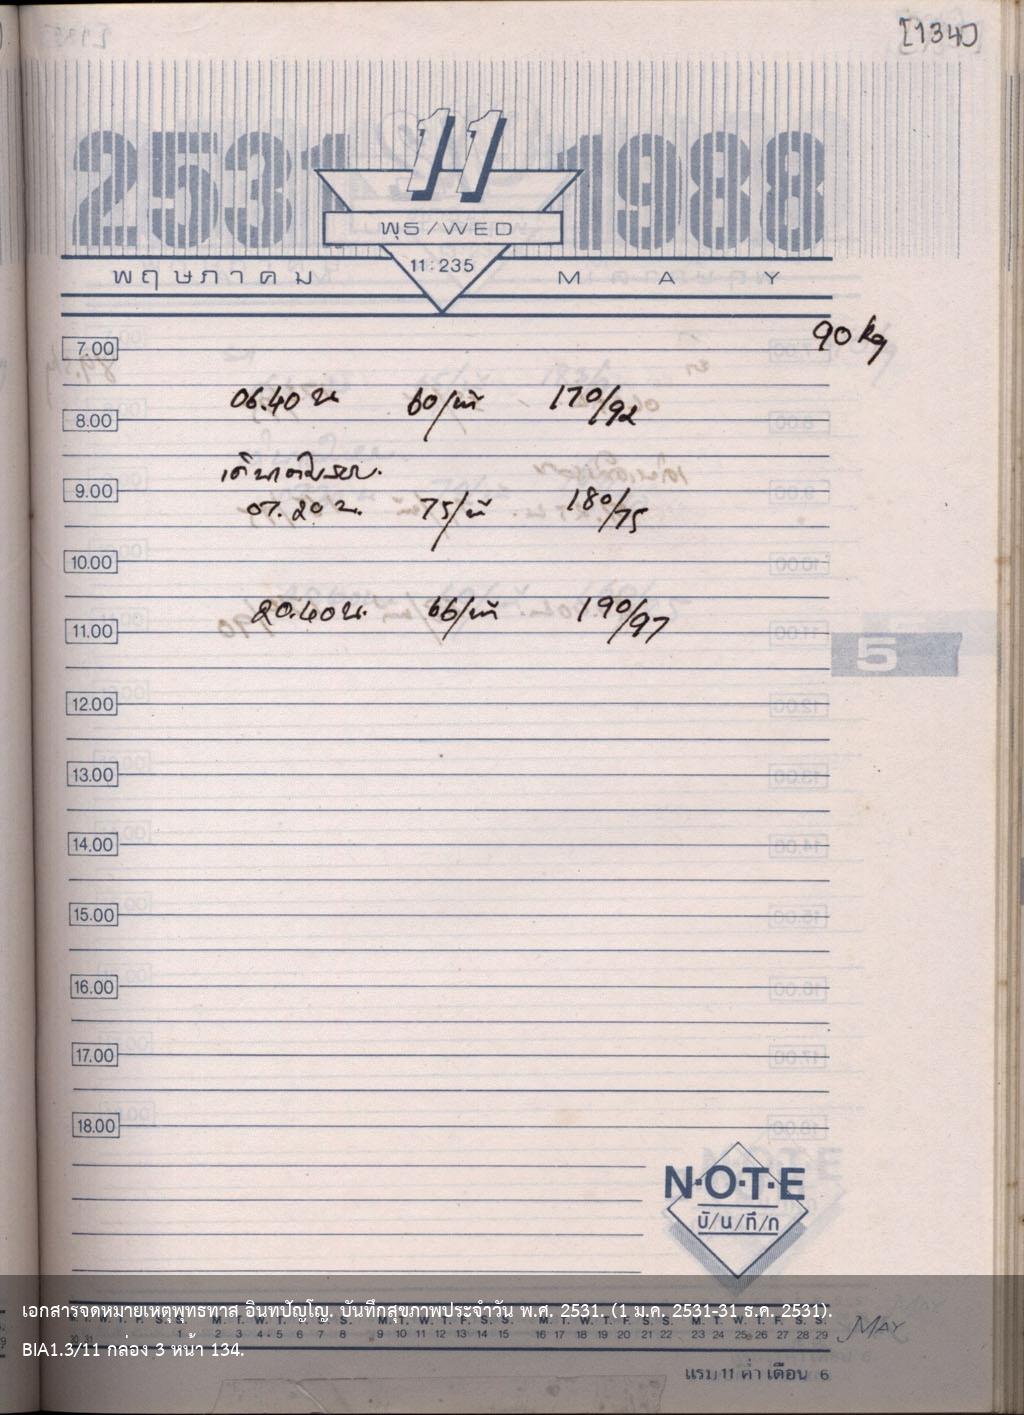 [134]
2531 11 1988
พุธ/WED
11:235
พฤษภาคม MAY
90 kg
7.00
06.40 น 60/นาที 170/92
8.00
9.00
07.20 น. 75/นาที 180/75
10.00
20.40 น. 66/นาที 190/97
11.00
5
12.00
13.00
14.00
15.00
16.00
17.00
18.00
N·O·T·E
บั/น/ทึ/ก
เอกสารจดหมายเหตุพุทธทาส อินทปัญโญ. บันทึกสุขภาพประจำวัน พ.ศ. 2531. (1 ม.ค. 2531-31 ธ.ค. 2531).
M. T. W. T. F. S. S. M. T. W. T. F. S. S. M. T. W. T. F. S. S. M. T. W. T. F. S. S.
2 3 4 5 6 7 8 9 10 11 12 13 14 15 16 17 18 19 20 21 22 23 24 25 26 27 28 29 MAY
BIA1.3/11 กล่อง 3 หน้า 134.
แรม 11 ค่ำ เดือน 6